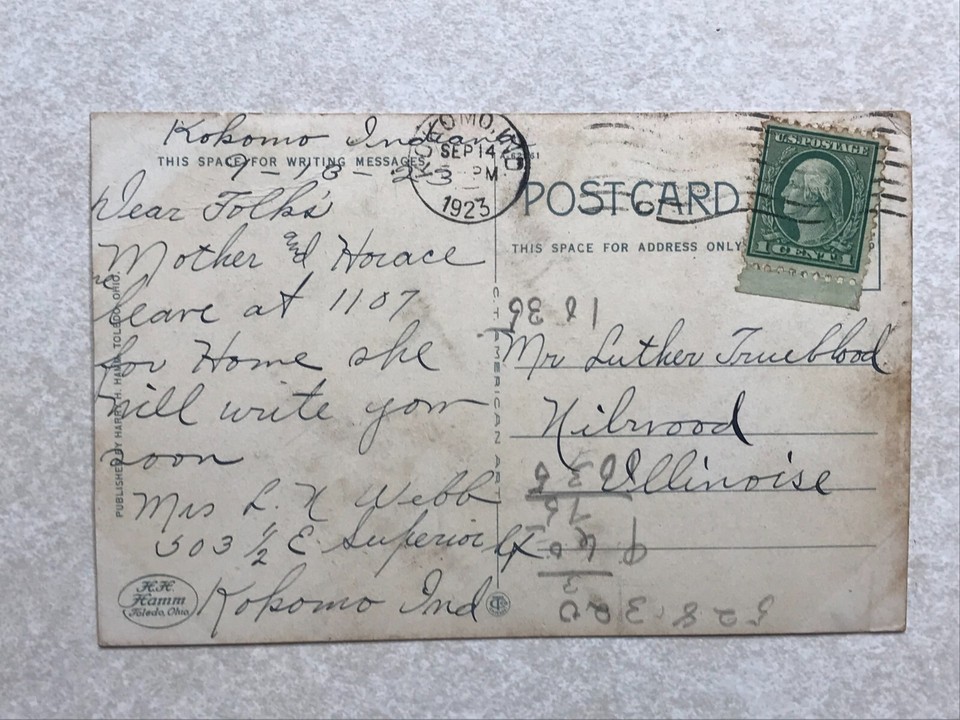 Kokomo Indiana
THIS SPACE FOR WRITING MESSAGES
9-13-23
Dear Folks
Mother and Horace
leave at 1107
for Home she
will write you
soon
Mrs L. N Webb
503 1/2 E Superior St
Kokomo Ind
PUBLISHED BY HARRY H. HAMM, TOLEDO, OHIO.
H.H.
Hamm
Toledo, Ohio.
C. T. AMERICAN ART
KOKOMO, IND
SEP 14
3 PM
1923
POST CARD
THIS SPACE FOR ADDRESS ONLY
U.S. POSTAGE
1 CENT 1
Mr Luther Trueblood
Nilwood
Illinoise